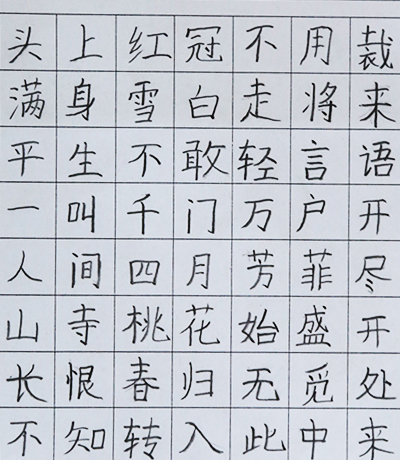 头上红冠不用裁
满身雪白走将来
平生不敢轻言语
一叫千门万户开
人间四月芳菲尽
山寺桃花始盛开
长恨春归无觅处
不知转入此中来